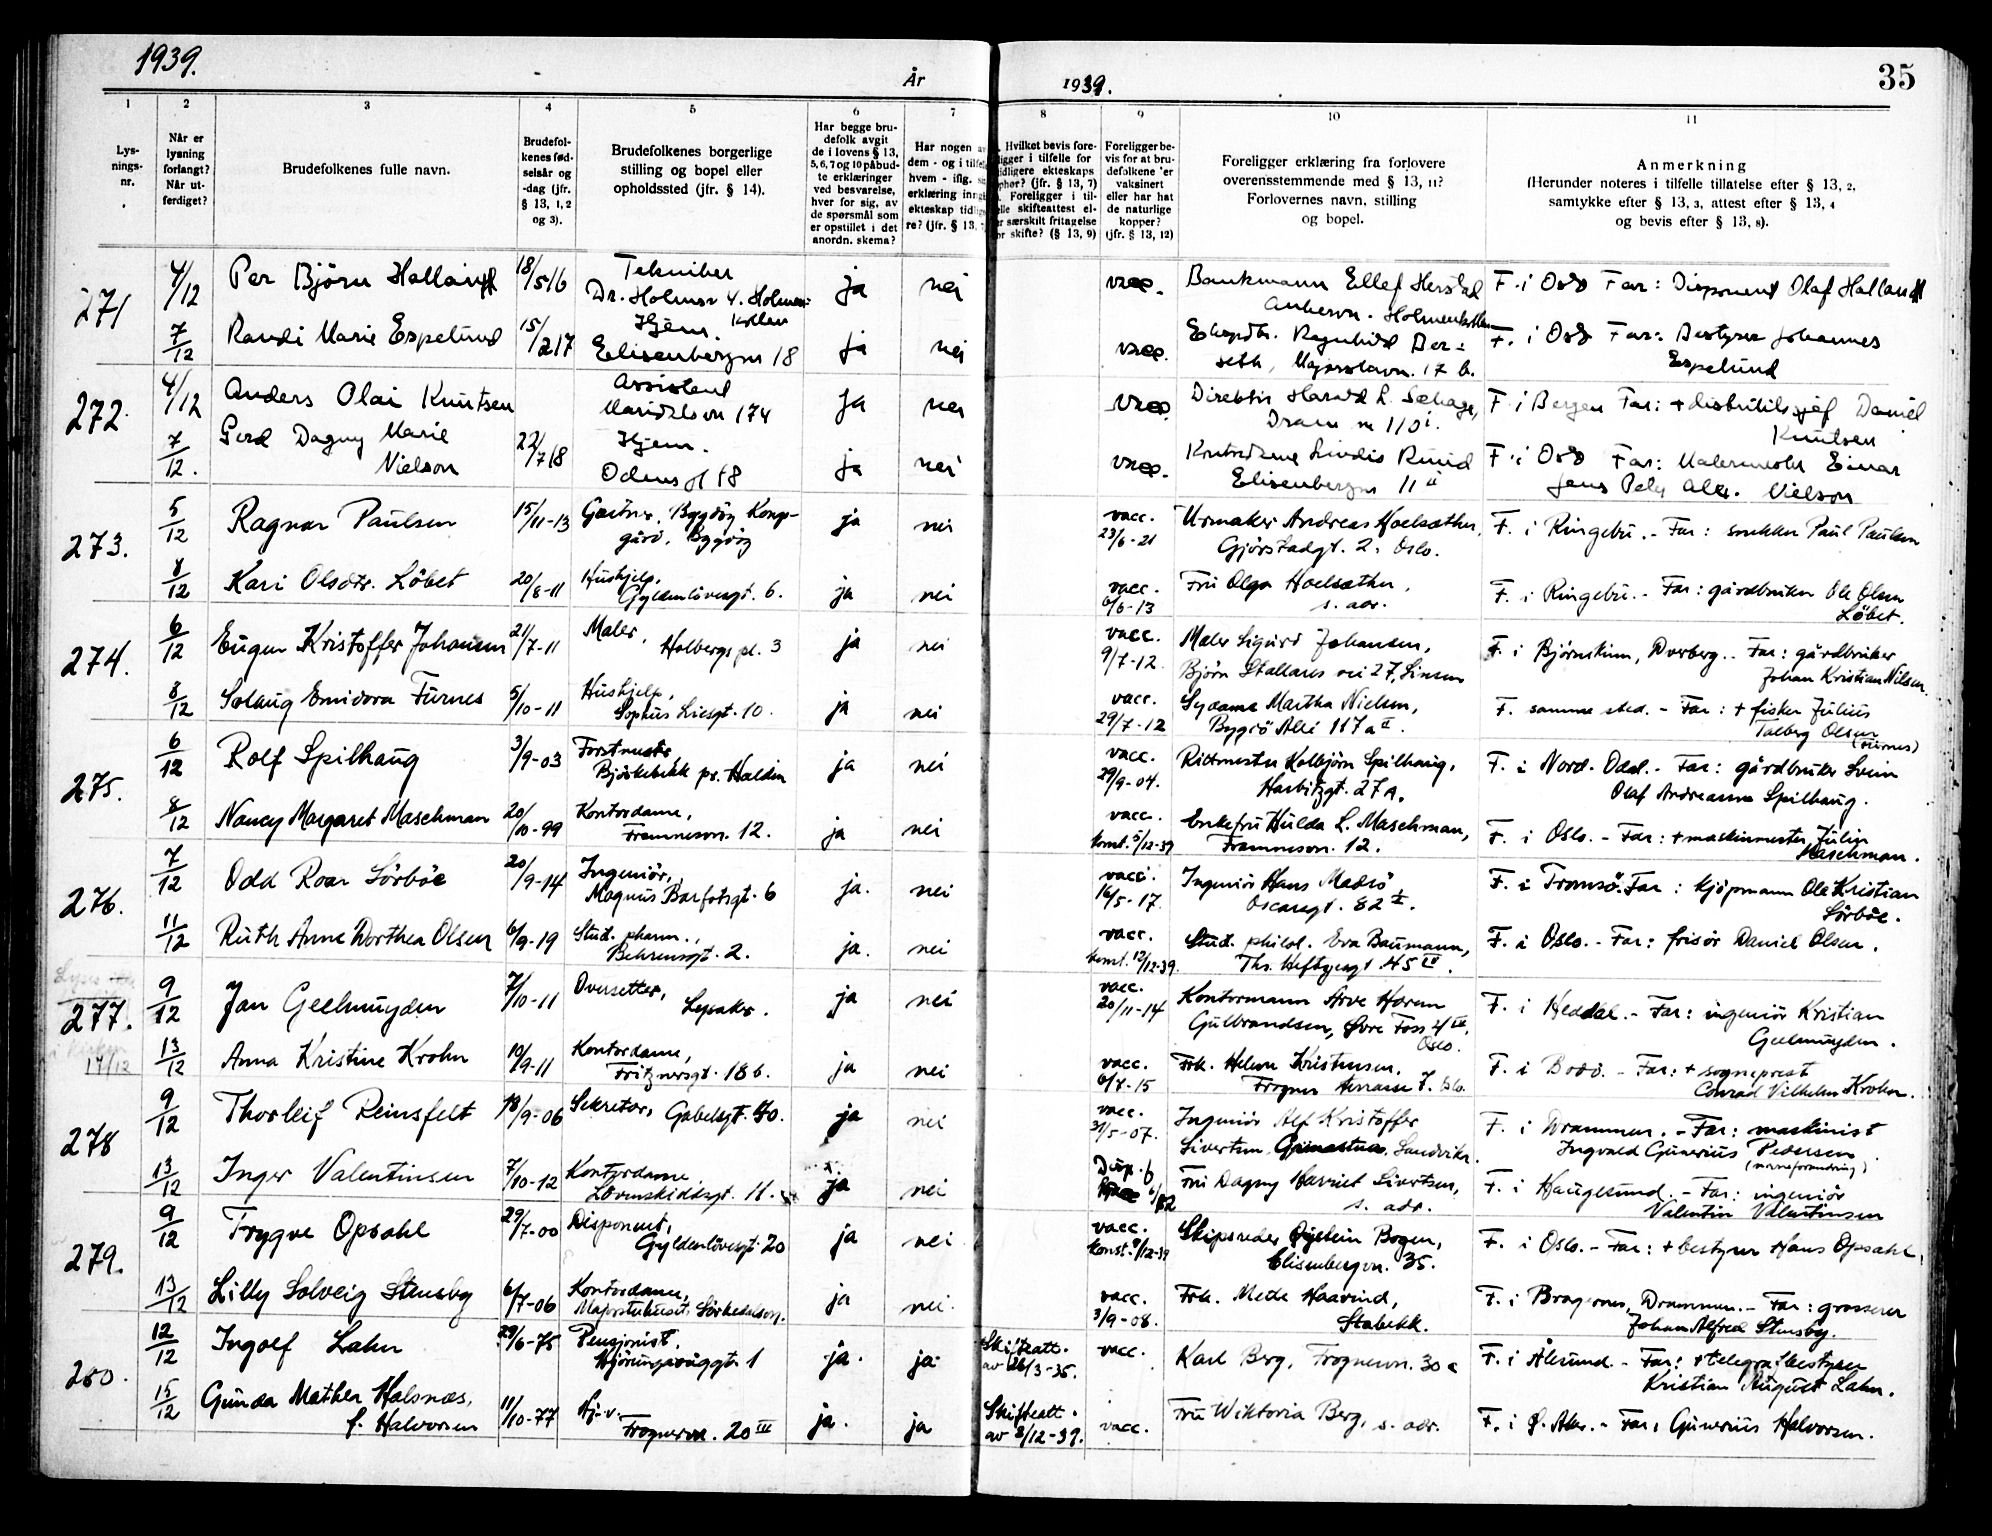 1939.
År
1939.
35
1
2
3
4
5
6
7
8
9
10
11
Lys-
nings-
nr.
Når er
lysning
forlangt?
Når ut-
ferdiget?
Brudefolkenes fulle navn.
Brudefol-
kenes fød-
selsår og
-dag (jfr.
§ 13, 1, 2
og 3).
Brudefolkenes borgerlige
stilling og bopel eller
opholdssted (jfr. § 14).
Har begge bru-
defolk avgit
de i lovens § 13,
5, 6, 7 og 10 påbud-
te erklæringer
ved besvarelse,
hver for sig, av
de spørsmål som
er opstillet i det
anordn. skema?
Har nogen a
dem - og i tilfe
hvem - iflg.
erklæring inng
ekteskap tidlig
re? (jfr. § 13,
Hvilket bevis fore-
ligger i tilfelle for
tidligere ekteskaps
ophør? (jfr. § 13, 7)
Foreligger i til-
elle skifteattest el-
er særskilt fritagelse
or skifte? (§ 13, 9)
Foreligger be-
vis for at bru-
defolkene er
vaksinert
eller har hat
de naturlige
kopper?
(jfr. § 13, 12)
Foreligger erklæring fra forlovere
overensstemmende med § 13, 11?
Forlovernes navn, stilling
og bopel.
Anmerkning
(Herunder noteres i tilfelle tillatelse efter § 13, 2,
samtykke efter § 13, 3, attest efter § 13, 4
og bevis efter § 13, 8).
271 4/12 Per Bjørn Halland 18/5 16 Tekniker
Dr. Holms v. Holmen-
kollen ja nei vacc. Bankmann Ellef Herstad
Ankerv. Holmenkollen F. i Oslo Far: Disponent Olaf Halland
7/12 Randi Marie Espelund 15/2 17 Hjem.
Elisenbergvn 18 ja nei vacc. Ekspdtr. Ragnhild Ber-
seth, Majorstavn. 17 b. F. i Oslo Far: Bestyrer Johannes
Espelund
272. 4/12 Anders Olai Knutsen Assistent
Maridalsvn 174 ja nei vacc Direktør Harald L.
Dramm vn 110 I. F. i Bergen Far: + Daniel
Knutsen
7/12. Gerd Dagny Marie
Nielson 22/7 18 Hjem.
Odins gt 18 ja nei vacc. Kontordame Lindis Ruud
Elisenbergvn 11 II F. i Oslo Far: Malermester Einar
Jens Peter Alex. Nielson
273. 5/12 Ragnar Paulsen 15/11-13 Gartner, Bygdøy Kongs-
gård, Bygdøy ja nei vacc.
23/6-21 Urmaker Andreas Hoelsæther,
Gjørstadgt. 2. Oslo. F. i Ringebu. - Far: snekker Paul Paulsen
8/12 Kari Olsdtr. Löbet 20/8-11 Hushjelp,
Gyldenløvesgt. 6. ja nei vacc.
6/6-13 Fru Olga Hoelsæther,
s. adr. F. i Ringebu. - Far: gårdbruker Ole Olsen
Löbet.
274. 6/12 Eugen Kristoffer Johansen 21/7-11 Maler,
Holbergs pl. 3 ja nei vacc.
9/7-12. Maler Sigurd Johansen,
Bjørn Stallares vei 27, Sinsen F. i Bjørnskinn, Dverberg. - Far: gårdbruker
Johan Kristian Nilsen.
8/12 Solaug Emidora Furnes 5/10-11 Hushjelp,
Sophus Liesgt. 10. ja nei vacc.
29/7-12 Sydame Martha Nielsen,
Bygdø Allé 117 a II. F. samme sted. - Far: + fisker Julius
Talberg Olsen
(Furnes)
275. 6/12 Rolf Spilhaug 3/9-03 Forstmester
Bjørkebekk pr. Halden ja nei vacc.
29/9-04. Rittmester Kolbjørn Spilhaug,
Harbitzgt. 27 A. F. i Nord-Odal. - Far: gårdbruker Svein
Olaf Andreassen Spilhaug.
8/12 Nancy Margaret Maschman 20/10-99 Kontordame,
Framnesvn. 12. ja nei vacc.
konst. 5/12-39 Enkefru Hulda L. Maschman,
Framnesvn. 12. F. i Oslo. - Far: + maskinmester Julius
Maschman.
276. 7/12 Odd Roar Sörböe 20/9-14 Ingeniør,
Magnus Barfotsgt. 6 ja. nei vacc.
16/5-17. Ingeniør Hans Madsö
Oscarsgt. 82 I. F. i Tromsö. Far: kjøpmann Ole Kristian
Sörböe.
11/12 Ruth Anne Dorthea Olsen 6/9-19 Stud. pharm.,
Behrensgt. 2. ja. nei vacc.
konst. 12/12-39. Stud. philol. Eva Baumann,
Ths. Heftyesgt. 45 IV. F. i Oslo. - Far: frisör Daniel Olsen.
277. 9/12 Jan Geelmuyden 7/10-11 Oversetter,
Lysaker. ja nei vacc.
20/11-14 Kontormann Arve Haram
Gulbrandsen, Øvre Foss 4 III,
Oslo. F. i Heddal. - Far: ingeniør Kristian
Geelmuyden.
14/12
13/12 Anna Kristine Krohn 10/9-11 Kontordame,
Fritznersgt. 18 b. ja nei vacc.
6/7-15 Frk. Helene Kristensen,
Frogner terrasse 7. Oslo. F. i Bodö. - Far: + sogneprest
Conrad Vilhelm Krohn.
278 9/12 Thorleif Reinsfelt 18/9-06 Sekretær, Gabelsgt. 40. ja nei vacc.
31/5-07. Ingeniør Alf Kristoffer
Sivertsen, Sandvika. F. i Drammen. - Far: maskinist
Ingvald Gunerius Pedersen
(navneforandring)
13/12 Inger Valentinsen 7/10-12 Kontordame,
Løvenskioldsgt. 11. ja nei Disp. f. Fru Dagny Harriet Sivertsen,
s. adr. F. i Haugesund. - Far: ingeniør
Valentin Valentinsen
279. 9/12 Trygve Opsahl 29/7-00 Disponent,
Gyldenløvesgt. 20 ja nei vacc.
konst. 9/12-39 Skipsreder Øystein Bogen,
Elisenbergvn. 35. F. i Oslo. - Far: + bestyrer Hans Opsahl.
13/12 Lilly Solveig Stensby 6/7-06 Kontordame,
Majorstuhuset, Sörkedalsvn. ja nei. vacc.
3/9-08. Frk. Mede Haavind,
Stabekk. F. i Bragernes, Drammen. - Far: grosserer
Johan Alfred Stensby.
280. 12/12 Ingolf Lahn 29/6-75 Pensjonist,
Hjørungavåggt. 1 ja. ja. Skifteatt.
av 26/3-35. vacc. Karl Berg, Frognervn. 30 a F. i Ålesund. - Far: + telegrafbestyrer
Kristian August Lahn.
15/12 Gunda Mathea Halsnæs,
f. Halvorsen 11/10-77 Hj.v.
Frognervn. 20 III ja. ja Skifteatt.
av 8/12-39. vacc. Fru Wiktoria Berg, s. adr. F. i Ø. Aker. - Far: Gunerius Halvorsen.